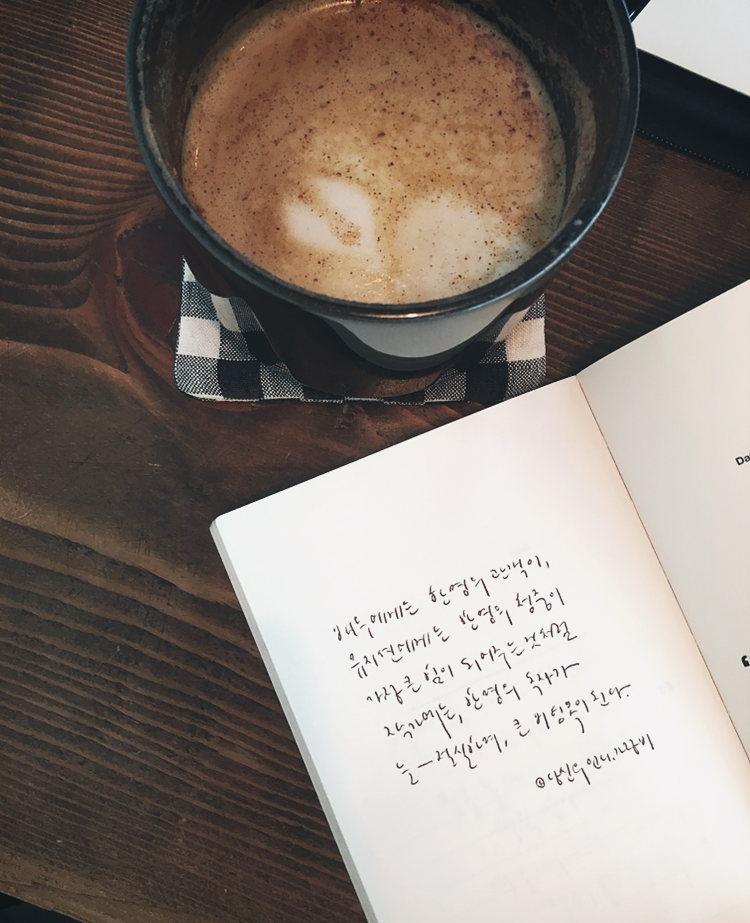 배우에게는 한명의 관객이,
뮤지션에게는 한명의 청중이
가장 큰 힘이 되어주는것처럼
작가에게는, 한명의 독자가
늘 — 절실하며, 큰 버팀목이 된다.
@당신의언니.
Da